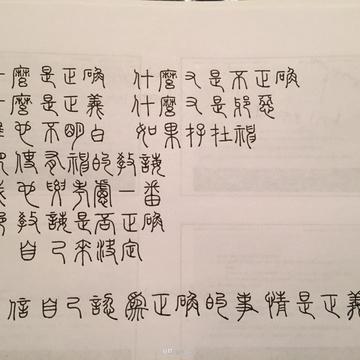 什麼是正確 什麼又是不正確
什麼是正義 什麼又是邪惡
誰也不明白 如果存在神
使有神的教誨
我也要考慮一番
教誨是否正確
自己來決定
信自己認為正確的事情是正義